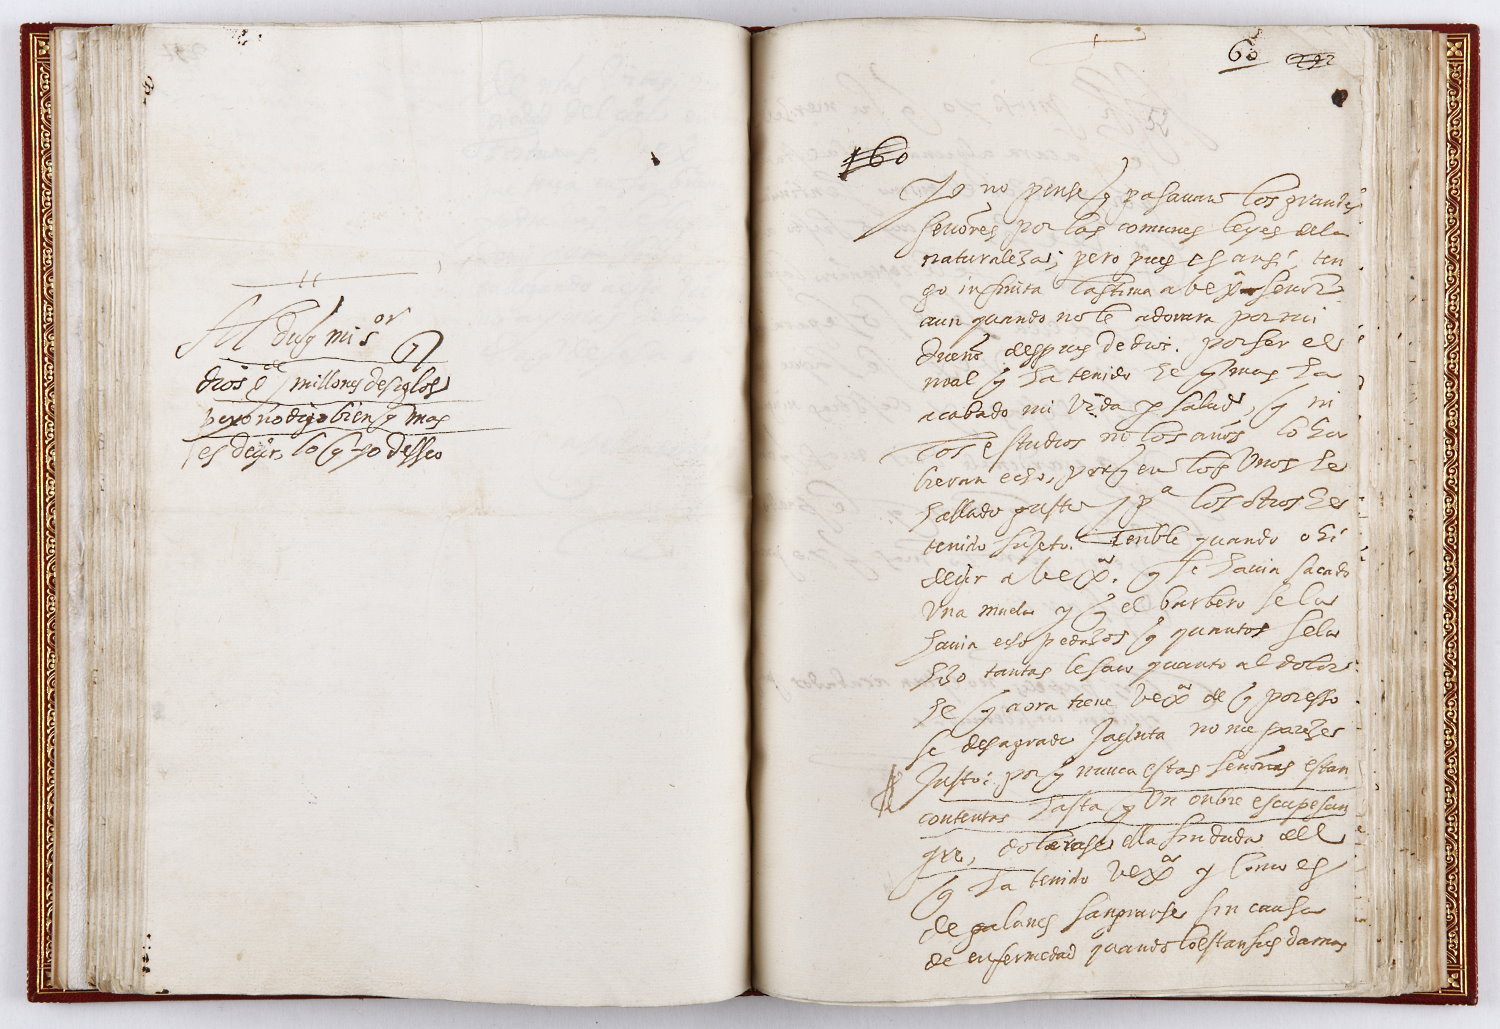 Al Duq mi Sor
Dios e mill millones de siglos
pero no digo bien q mas
es deçir, lo q yo desseo
60
60
Yo no pense q pasauan los grandes
señores por las comunes leyes de la
naturaleza; pero pues es ansi, ten
go infinita lastima a Vex.ª señor
aun quando no le adorara por mi
dueño despues de dios. por ser el
mal q ha tenido he q mas ha
acabado mi vida y salud, q ni
los estudios ni los años lo hu
bieran echo, porq en los unos he
hallado gusto y pª los otros he
tenido sujeto. Temble quando ohi
deçir a Vexª. q le hauia sacado
una muela y q el barbero se la
hauia echo pedazos q quantos se la
hizo tantas le sacu quanto al dolor
he q aora tiene Vexª de q por esso
se desagrade Jaçinta no me pareze
justo: porq nunca estas señoras estan
contentas hasta q un onbre escupe san
gre, dolerase ella sin duda del
q ha tenido Vexª y como es
de galanes sangrarse sin causa
de enfermedad quando lo estan sus damas